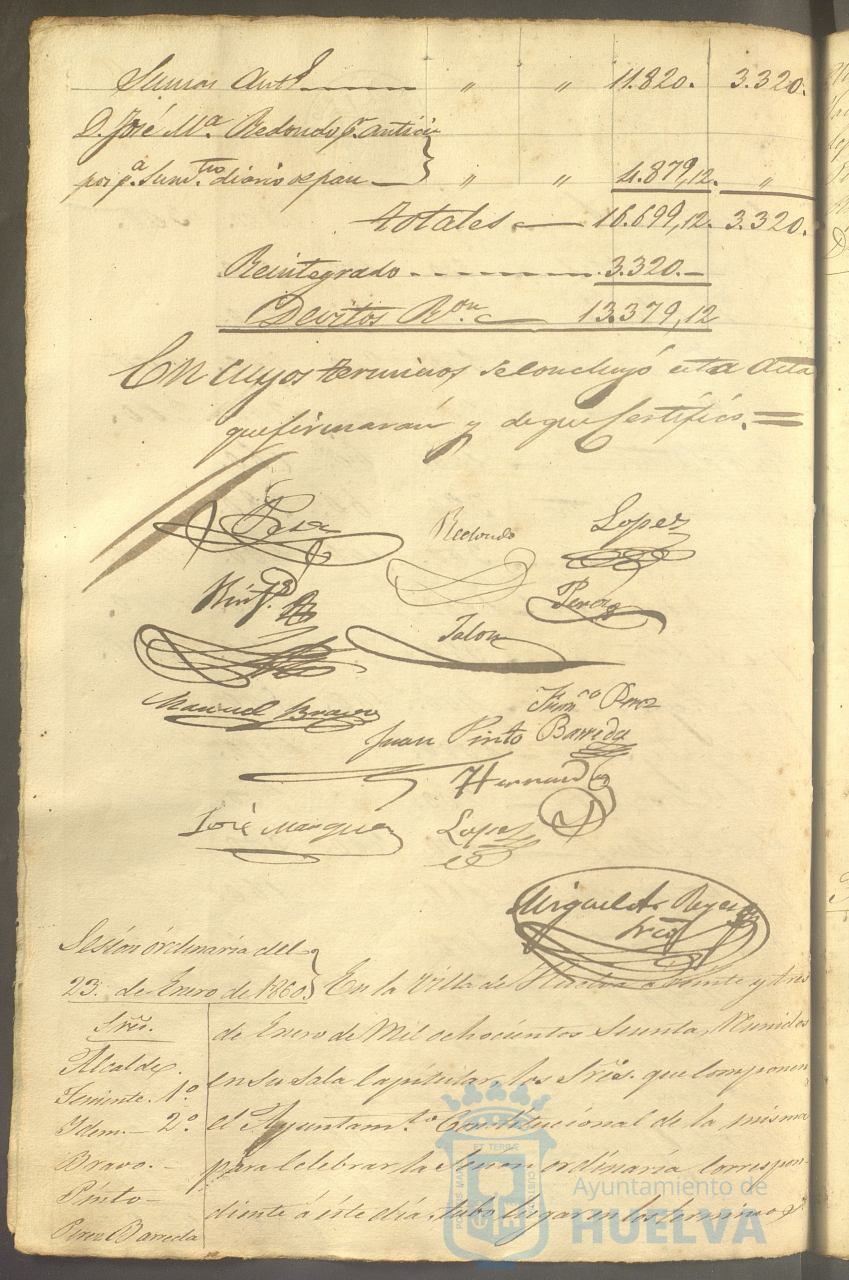 Sumas Antr. " " 11.820. 3.320.
D. José Ma. Redondo pr. antici
por pa. Sumtro. diario de pan " " 4.879,12. "
totales 16.699,12. 3.320.
Reintegrado 3.320.
Devitos Ron 13.379,12
En cuyos terminos se concluyó esta Acta
que firmaran y de que Certifico. =
Redondo Lopez
Perez
Talon
Manuel Bravo
Juan Pinto Barreda
Hernand
José Marquez Lopez
Miguel Ar Reyes
Srio
Sesión ordinaria del
23. de Enero de 1860.
Sres.
Alcalde.
Teniente. 1º
Idem 2º
Bravo.
Pinto
Perez Barreda
En la Villa de Huelva a veinte y tres
de Enero de Mil ochocientos sesenta, Reunidos
en su sala Capitular, los Sres. que componen
el Ayuntamto. Constitucional de la misma
para celebrar la Sesion ordinaria correspon-
diente á este dia, tubo lugar en los terminos
Ayuntamiento de
HUELVA